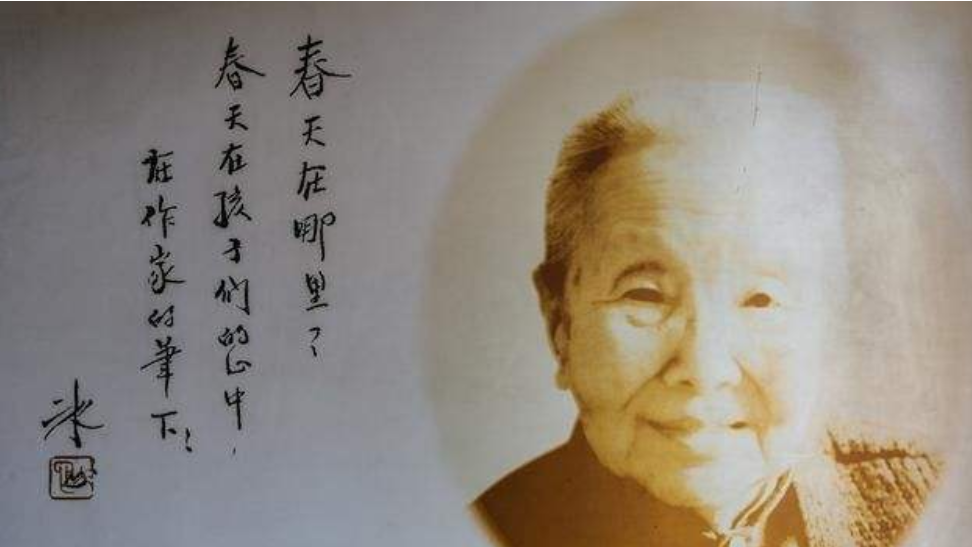 春天在哪里?
春天在孩子们的心中,
在作家的筆下!
冰心